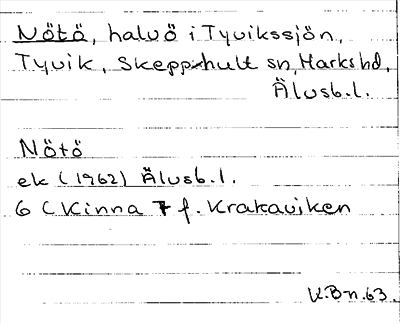 Nötö, halvö i Tyvikssjön,
Tyvik, Skepphult sn, Marks hd,
Älvsb.l.
Nötö
ek (1962) Älvsb.l.
6 C Kinna 7 f. Krakaviken
K.B-n.63.